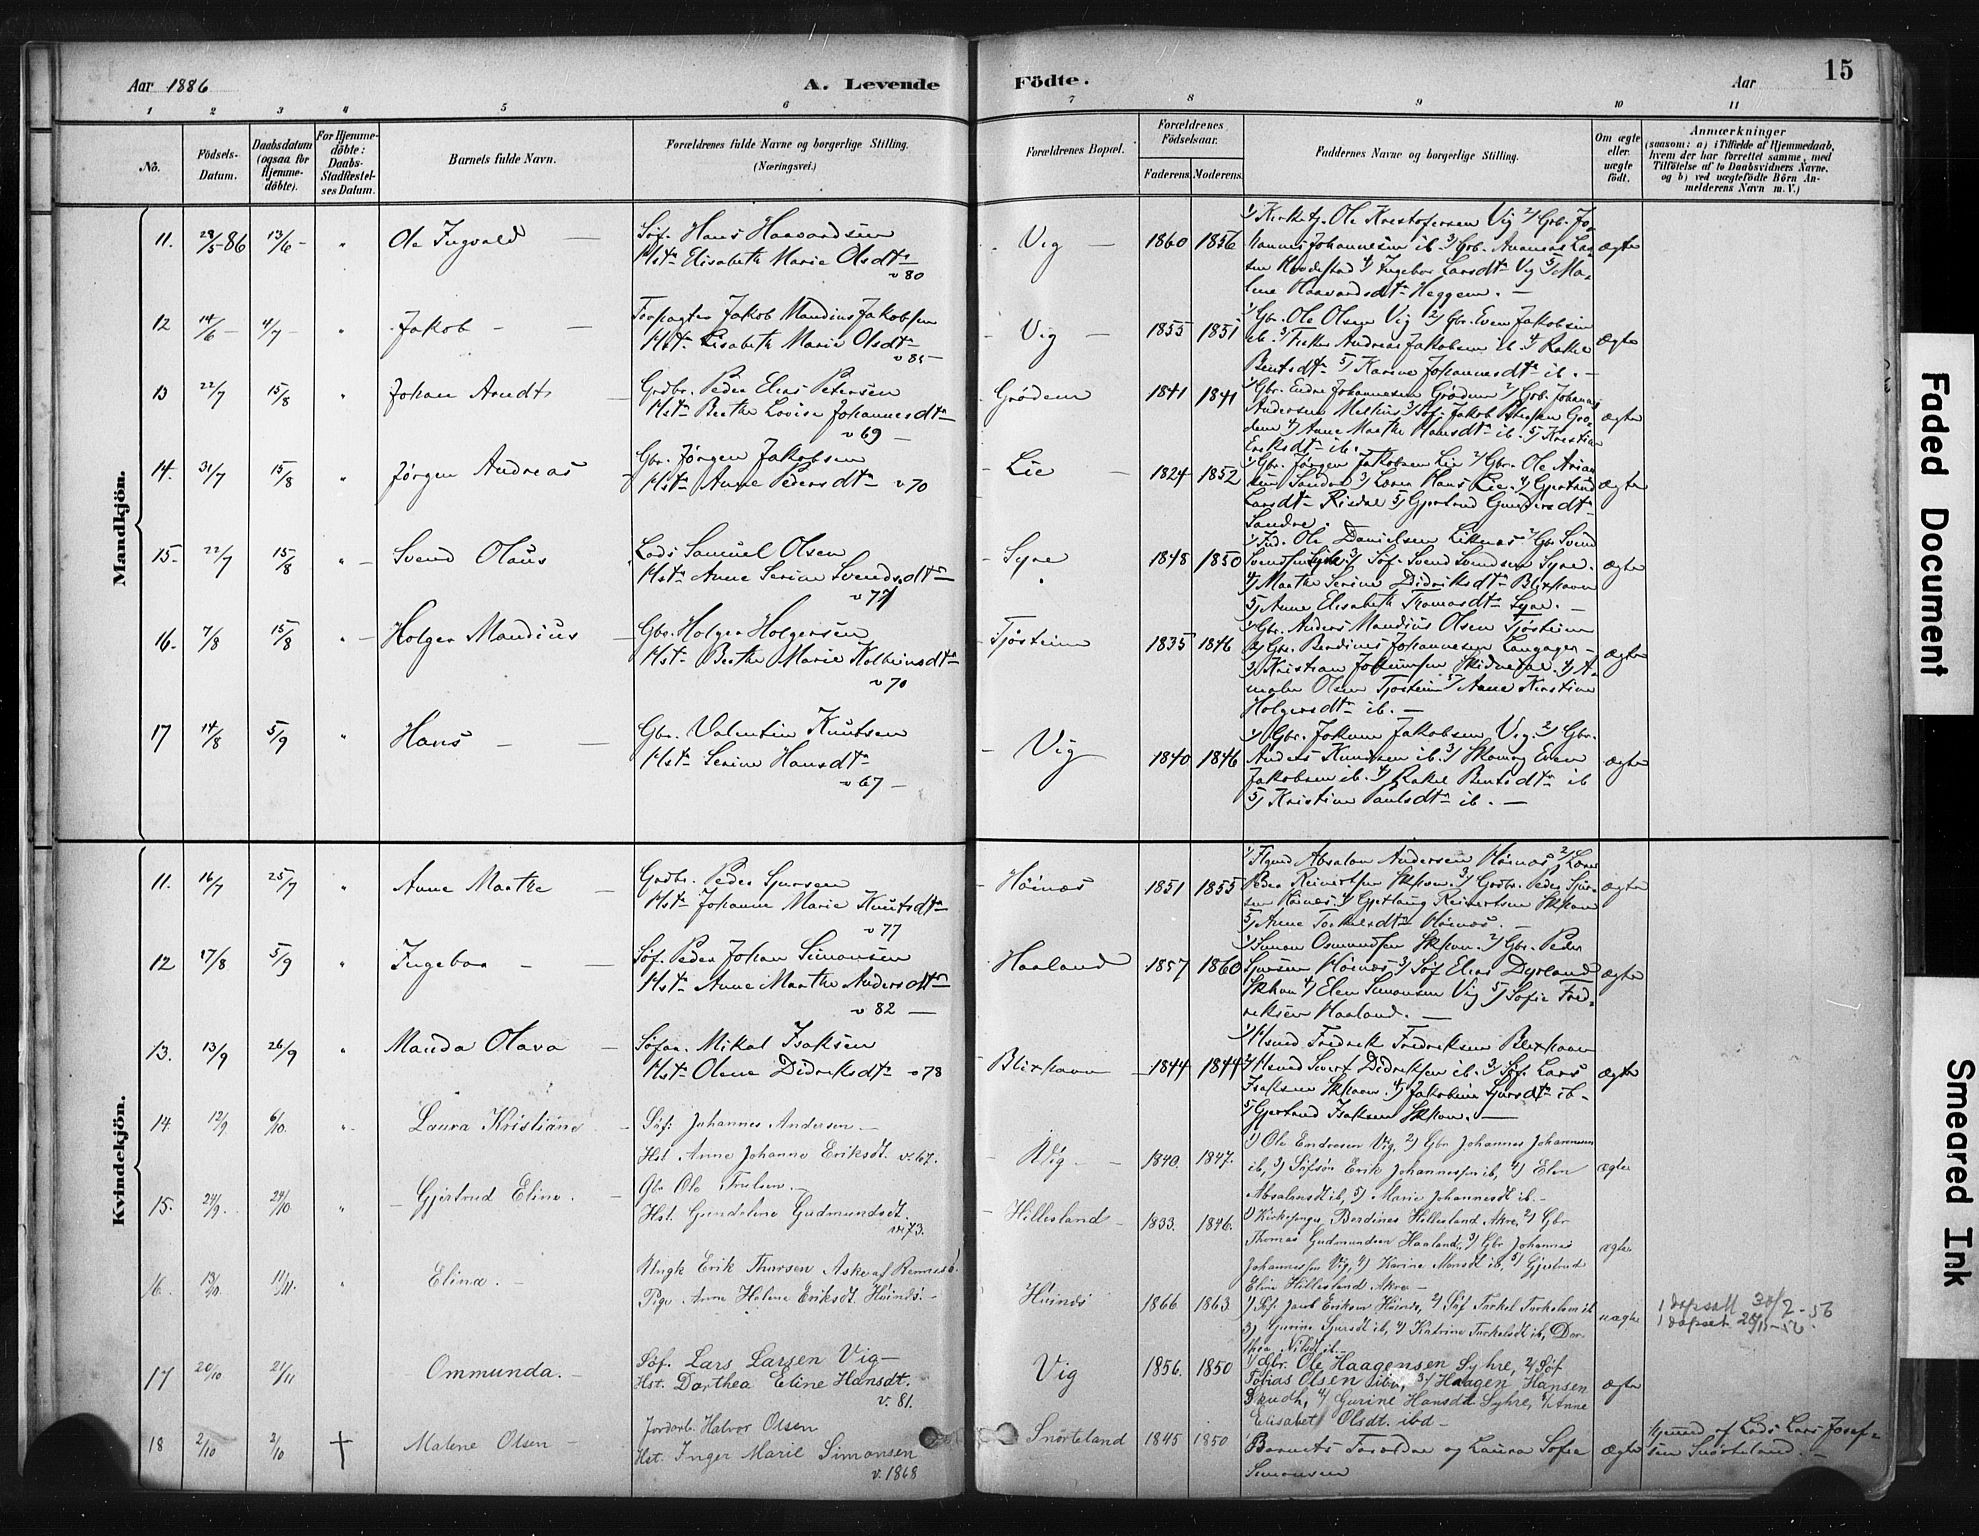 Aar 1886
A. Levende
Födte.
Aar
15
1 2 3 4 5 6 7 8 9 10 11
No.
Födsels-Datum.
Daabsdatum (ogsaa for Hjemme-döbte).
For Hjemme-döbte: Daabs-Stadfæstel-ses Datum.
Barnets fulde Navn.
Forældrenes fulde Navne og borgerlige Stilling.
(Næringsvei.)
Forældrenes Bopæl.
Forældrenes Födselsaar.
Faderens.
Moderens.
Faddernes Navne og borgerlige Stilling.
Om ægte eller uægte født.
Anmærkninger
(saasom: a) i Tilfælde af Hjemmedaab,
hvem der har forrettet samme, med
Tilföielse af to Daabsvidners Navne,
og b) ved uægtefödte Börn An-
melderens Navn m. V.)
Mandkjön.
11. 28/5-86 13/6 - " Ole Ingvald —
Søf. Hans Haavardsen
Hst. Elisabeth Marie Olsdtr
v 80
Vig — 1860 1856
1) Kirketj. Ole Kristofersen Vig 2) Gbr. Jo-
hannes Johannesen ib. 3) Gbr. Ananias Lar-
sen 4) Ingebor Larsdtr Vig 5) Ma-
lene Haavardsdtr Heggem. —
ægte
12 14/6 - 4/7 - " Jakob — —
Jakob Mandius Jakobsen
Hst. Elisabeth Marie Olsdtr
v 85 -
Vig — 1855 1851
1) Gbr. Ole Olsen Vig 2) Gbr. Even Jakobsen
ib. 3) Andreas Jakobsen ib. 4) Rakel
Bentsdtr 5) Karine Johannesdtr ib. —
ægte
13 22/7 15/8 " Johan Arndt —
Grdbr. Peder Elias Petersen
Hst. Berthe Lovise Johannesdtr
v 69 —
Grødem 1841 1841
1) Gbr. Endre Johannesen Grødem 2) Grb. Johannes
Andersen 3) Søf. Jakob Grø-
dem 4) Anne Marthe Hansdtr ib. 5) Kristian
Eriksdtr ib.
ægte
14. 31/7 15/8 " Jørgen Andreas
Gbr. Jørgen Jakobsen
Hst. Anne Pedersdtr v 70
Lie — 1824 1852
1) Gbr. Jørgen Jakobsen Lie 2) Gbr. Ole Arian-
sen Sandve 3) Hans Lie. 4) Gjertrud
Larsdtr 5) Gjertrud Gundersdtr
Sandve.
ægte
15. 22/7 15/8 " Svend Olaus
Lods Samuel Olsen
Hst. Anne Serine Svendsdtr
v 77
Syre 1848 1850
1) Ind. Ole Danielsen 2) Gbr Svend
Svendsen Syre 3) Søf. Svend Svendsen Syre.
4) Marthe Serine Didriksdtr Blixhavn
5) Anne Elisabeth Tomasdtr Syre. —
ægte
16. 7/8 15/8 " Holger Mandius
Gbr. Holger Holgersen
Hst. Berthe Marie Kolbeinsdtr
v 70
Tjøsteim 1835 1846
1) Gbr. Anders Mandius Olsen Tjøsteim
2) Gbr. Berdines Johannesen Langager -
3) Kristian 4) A-
malie Olsen Tjøsteim 5) Anne Kirstine
Holgersdtr ib. —
ægte
17 14/8 5/9 " Hans — —
Gbr. Valentin Knutsen
Hst. Serine Hansdtr
v 67 —
Vig 1840 1846
1) Gbr. Johan Jakobsen Vig. 2) Gbr.
Anders Knudsen ib. 3) Even
Jakobsen ib. 4) Rakel Bentsdtr ib
5) Kristine Paulsdtr ib. —
ægte
Kvindekjön.
11. 16/7 25/7 " Anne Marthe —
Grdbr. Peder Sjursen
Hst. Johanne Marie Knutsdtr
v 77
Høinæs 1851 1855
1) Absalon Andersen Høinæs 2)
Peder Reinertsen Skhavn. 3) Grdbr. Peder Sjur-
sen Høinæs 4) Gjerlaug Reinertsen Skhavn
5) Anne Torkelsdtr Høinæs. —
ægte
12 17/8 5/9 " Ingebor — —
Søf. Peder Johan Simonsen
Hst. Anne Marthe Andersdtr
v 82 —
Haaland 1857 1860
1) Simon Osmundsen Skhavn. 2) Gbr. Peder
Sjursen Høinæs 3) Søf Elias Dyrland
Skhavn 4) Elen Simonsen Vig 5) Sofie Fred-
riksen Haaland. —
ægte
13. 13/9 26/9 " Manda Olava —
Søfar. Mikal Isaksen
Hst. Olene Didriksdtr v 78
Blixhavn 1844 1844
1) Fredrik Fredriksen Blixhavn
2) Sivert Didriksen ib. 3) Søf. Lars
Isaksen Skhavn. 4) Jakobine Sjursdtr ib -
5) Gjertrud Isaksen Skhavn. —
ægte
14. 12/9 6/10. " Laura Kristiane
Søf: Johannes Andersen —
Hst Anne Johanne Eriksdt. v. 67.
Vig — 1840. 1847.
1) Ole Endresen Vig, 2) Gbr Johannes Johannesen
ib, 3) Søfsøn Erik Johannesen ib, 4) Elen
Absalonsdt ib, 5) Marie Johannesdt ib. -
ægte
15. 24/9. 24/10. " Gjertrud Eline. -
Gbr Ole Trulsen. —
Hst. Gundeline Gudmundsdt.
v. 73.
Hillesland - 1833. 1846.
1) Kirkesanger Berdines Hillesland Akre, 2) Gbr
Thomas Gudmundsen Haaland, 3) Gbr Johannes
Johannesen Vig, 4) Karine Monsdt ib, 5) Gjertrud
Eline Hillesland Akre —
ægte.
16. 13/10. 11/11. " Eline. -
Ungk Erik Thorsen Aske af Rennesø
Pige Anne Helene Eriksdt. Høinæs. -
Høinæs 1866 1863
1) Søf. Jacob Eriksen Høinæs, 2) Søf Torkel Torkelsen ib
3) Gurine Sjursdt ib, 4) Katrine Torkelsdt ib, Dor-
thea Nilsdt ib. —
uægte
1 dåpsatt 30/7 - 56
1 dåpsatt 26/11 - 56.
17 20/10 21/11 Ommunda. -
Søf. Lars Larsen Vig —
Hst. Dorthea Eline Hansdt.
v. 81.
Vig 1856. 1850
1) Gbr. Ole Haagensen Syhre, 2) Søf
Tobias Olsen ibd, 3) Haagen Hansen
4) Gurine Hansdt Syhre, 5) Anne
Elisabet Olsdt. ibd —
ægte
18 2/10 3/10 † Malene Olsen -
Jordarb. Halvor Olsen
Hst. Inger Marie Simonsen
v. 1868
Snørteland 1845 1850
Barnets Forældre og Laura Sofia
Simonsen
ægte
Hjemd af Lods Lars Josef-
sen Snørteland. —
Faded Document
Smeared Ink